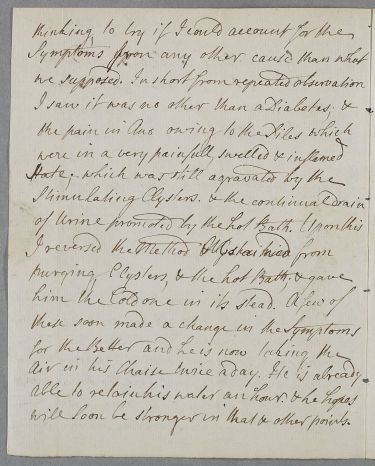 thinking to try if I could account for the
Symptoms upon any other cause than what
we supposed. In short from repeated observation
I saw it was no other than a Diabetes, &
the pain in Ano owing to the Piles which
were in a very painfull, swelled & inflamed
State. which was still agravated by the
Stimulating Clysters. & the continual drain
of Urine promoted by the hot Bath. Upon this
I reversed the Method from
purging Clysters, & the hot Bath. & gave
him the Cold one in its stead. A few of
these soon made a change in the Symptoms
for the Better and he is now taking the
Air in his Chaise twice a day. He is already
able to retain his water an hour. & he hopes
will soon be stronger in that & other points.